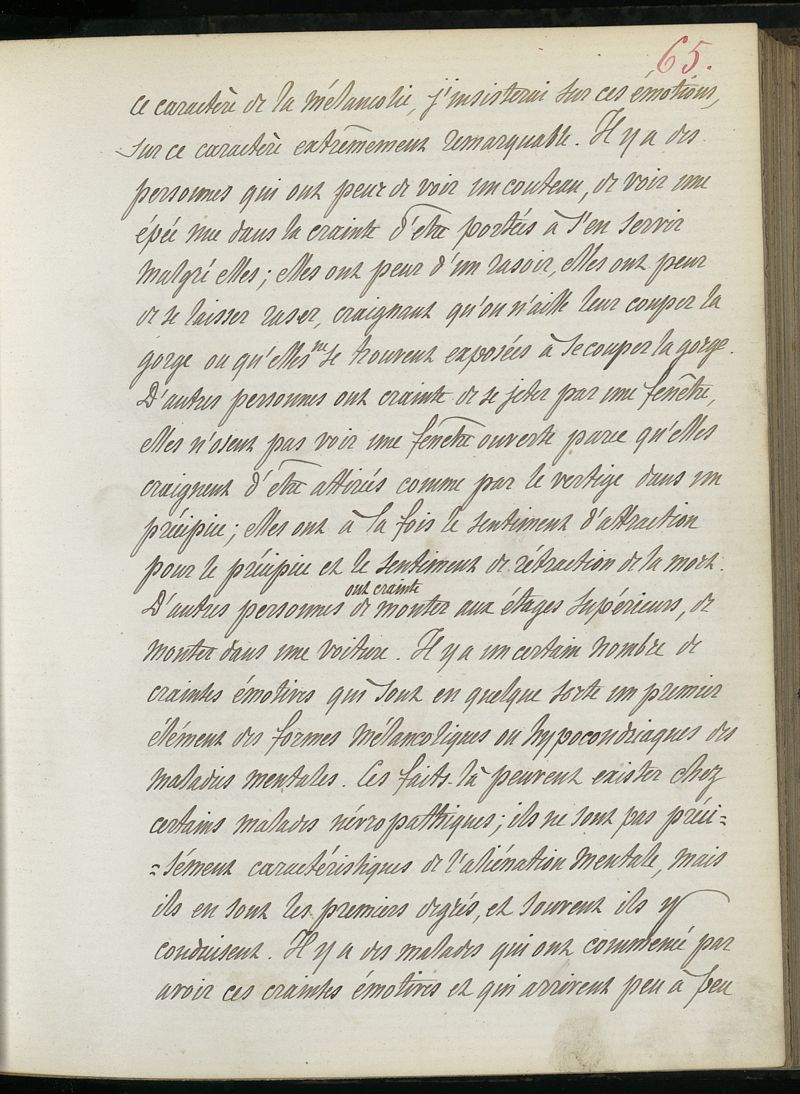 65.
ce caractère de la mélancolie, j'insisterai sur ces émotions,
sur ce caractère extrêmement remarquable. Il y a des
personnes qui ont peur de voir un couteau, de voir une
épée nue dans la crainte d'être portées à s'en servir
malgré elles ; elles ont peur d'un rasoir, elles ont peur
de se laisser raser, craignant qu'on n'aille leur couper la
gorge ou qu'elles ne se trouvent exposées à se couper la gorge.
D'autres personnes ont crainte de se jeter par une fenêtre,
elles n'osent pas voir une fenêtre ouverte parce qu'elles
craignent d'être attirés comme par le vertige dans un
précipice ; elles ont à la fois le sentiment d'attraction
pour le précipice et le sentiment de rétraction de la mort.
D'autres personnes ont crainte de monter aux étages supérieurs, de
monter dans une voiture. Il y a un certain nombre de
craintes émotives qui sont en quelque sorte un premier
élément des formes mélancoliques ou hypocondriaques des
maladies mentales. Ces faits-là peuvent exister chez
certains malades névropathiques ; ils ne sont pas préci=
=sément caractéristiques de l'aliénation mentale, mais
ils en sont les premiers degrés, et souvent ils y
conduisent. Il y a des malades qui ont commencé par
avoir ces craintes émotives et qui arrivent peu à peu